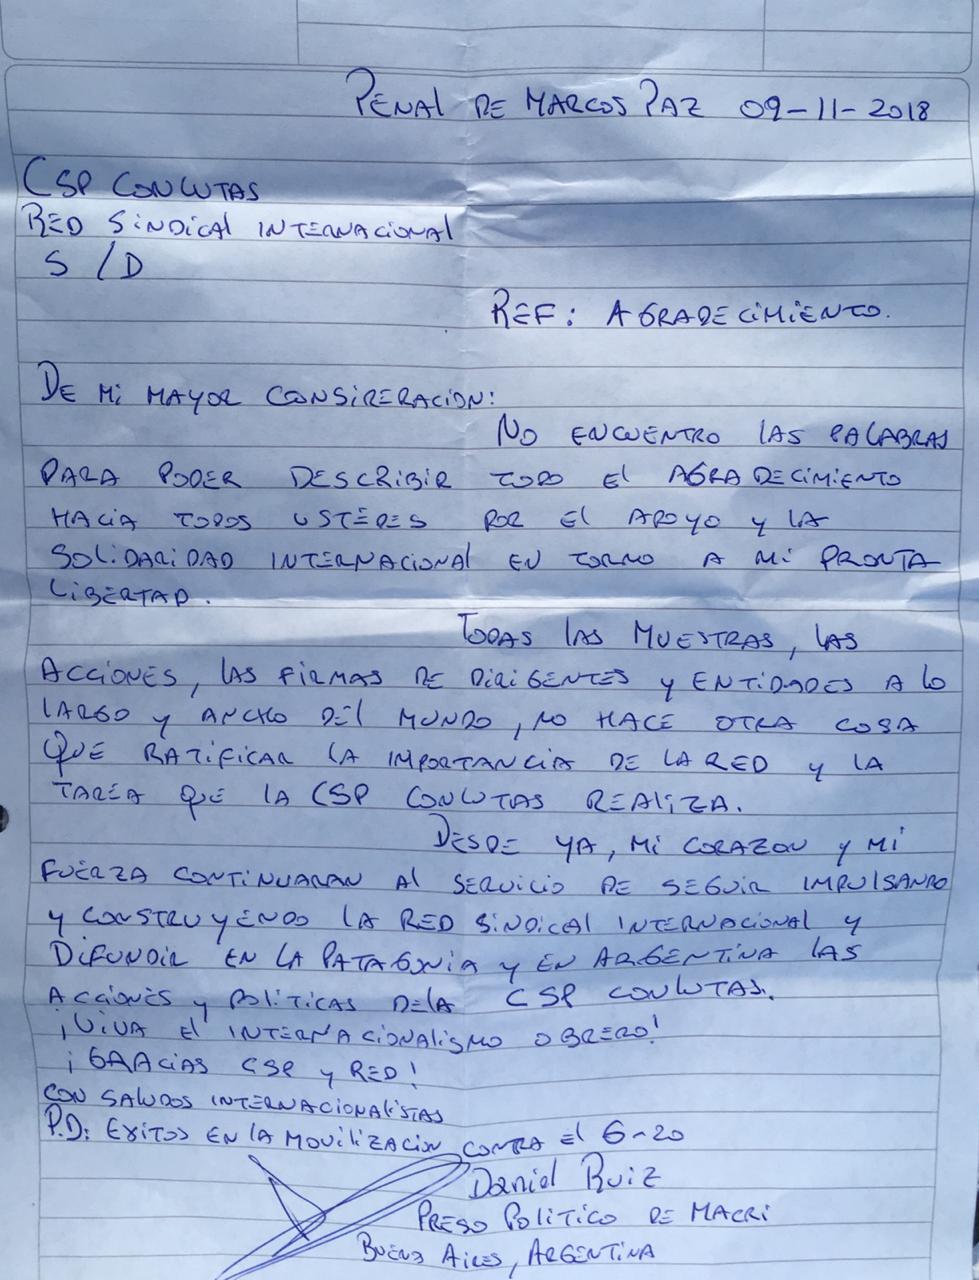 PENAL DE MARCOS PAZ 09-11-2018
CSP CONLUTAS
RED SINDICAL INTERNACIONAL
S/D
REF: AGRADECIMIENTO.
DE MI MAYOR CONSIDERACION:
NO ENCUENTRO LAS PALABRAS
PARA PODER DESCRIBIR TODO EL AGRADECIMIENTO
HACIA TODOS USTEDES POR EL APOYO Y LA
SOLIDARIDAD INTERNACIONAL EN TORNO A MI PRONTA
LIBERTAD.
TODAS LAS MUESTRAS, LAS
ACCIONES, LAS FIRMAS DE DIRIGENTES Y ENTIDADES A LO
LARGO Y ANCHO DEL MUNDO, NO HACE OTRA COSA
QUE RATIFICAR LA IMPORTANCIA DE LA RED Y LA
TAREA QUE LA CSP CONLUTAS REALIZA.
DESDE YA, MI CORAZON Y MI
FUERZA CONTINUARAN AL SERVICIO DE SEGUIR IMPULSANDO
Y CONSTRUYENDO LA RED SINDICAL INTERNACIONAL Y
DIFUNDIR EN LA PATAGONIA Y EN ARGENTINA LAS
ACCIONES Y POLITICAS DE LA CSP CONLUTAS.
¡VIVA EL INTERNACIONALISMO OBRERO!
¡GRACIAS CSP Y RED!
CON SALUDOS INTERNACIONALISTAS
P.D: EXITOS EN LA MOVILIZACION CONTRA El G-20
Daniel Ruiz
PRESO POLITICO DE MACRI
BUENOS AIRES, ARGENTINA